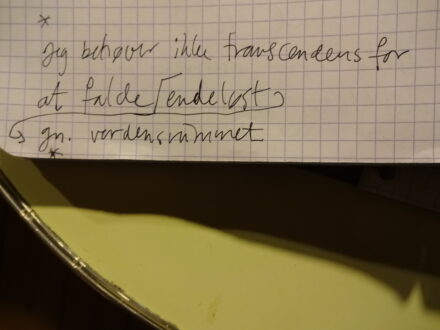 *
jeg behøver ikke transcendens for
at falde [endeløst]
gn. verdensrummet
*